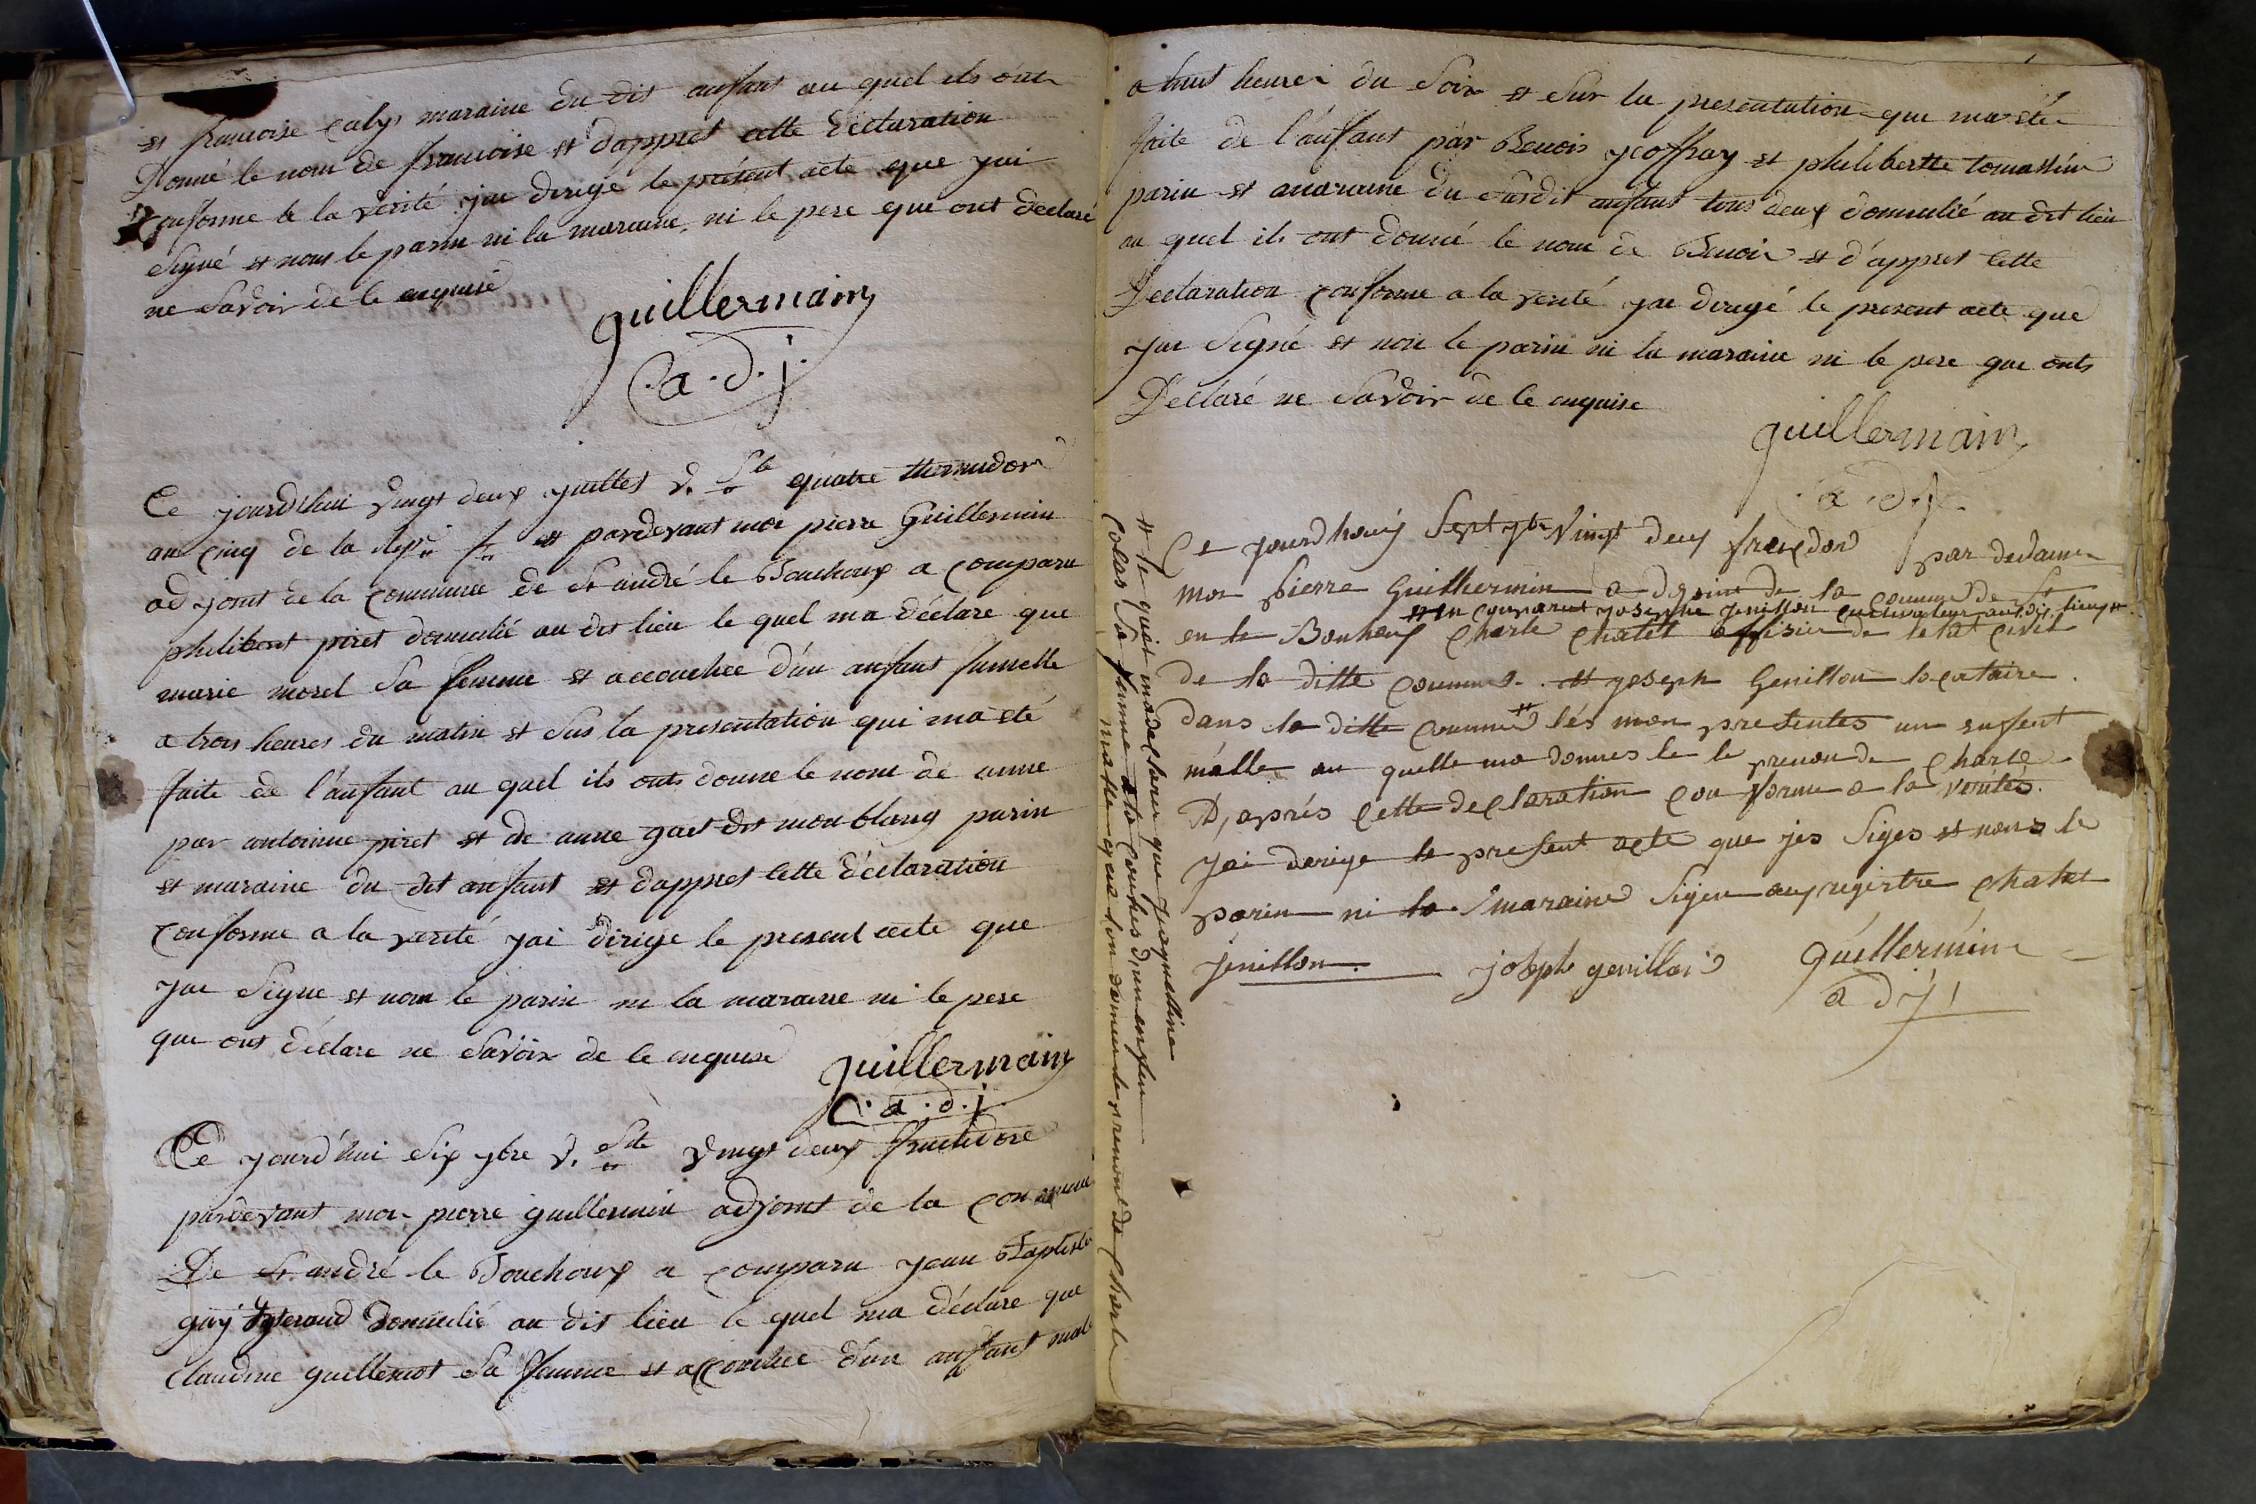 et francoise calÿ maraine du dit anfant au quel ils ont
Donné le nom de francoise et dappret cette declaration
conforme à la verité jai dirigé le présent acte que jai
Signé et non le parin ni la maraine, ni le pere que ont declaré
ne Savoir de ce enquise
guillermain
a.d.j.
Ce jourd'hui vingt deux juillet v. Ste quatre thermidor
an cinq de la rep. f. et pardevant moi pierre Guillermin
adjoint de la commune de St andré le Bouchoux a comparu
philibert piret domicilié au dit lieu le quel ma déclare que
marie morel Sa femme et accouchee d'un anfant fumelle
a trois heures du matin et Sus la presentation qui ma été
faite de l'anfant au quel ils onts donne le nom de anne
par antoinne piret et de anne gaet dit monblang parin
et maraine du dit anfant et dappret cette déclaration
conforme a la verité jai dirige le present acte que
jai Signe et non le parin ni la maraine ni le pere
que ont déclare ne Savoir de ce enquise
guillermain
a.d.j.
Ce jourd'hui Six ybre v. Ste vingt deux fructidore
pardevant moi pierre guillermin adjoint de la commune
De St andré le Bouchoux a comparu jean Baptiste
guy domicilié au dit lieu le quel ma déclare que
claudine guillemot Sa femme et accouchee d'un anfant male
a huit heures du Soir et Sur la presentation que ma été
faite de l'anfant par Benois jeoffray et philibertte tomassin
parin et maraine du Susdit anfant tous deux domicilié au dit lieu
au quel ils ont donné le nom de Benoir et d'appret cette
Declaration conforme a la verité jai dirigé le present acte que
jai Signé et non le parin ni la maraine ni le pere que onts
Déclaré ne Savoir de ce enquise
guillermain
a.d.j.
Ce jourd houy Sept ybr Vingt deux fruxdor par dedamn
moi pierre Guilhermin a djoint de la commune de St
# in comparut josephe jenillon cultivateur au dit lieux #
en le Bouhoux Charle Chatel offisier de letat civil
de la ditte commune. et joseph Genillon locataire
dans la ditte commune # lés mon presentes un enfent
málle au quelle ma donnes le le prenon de Charle
D,aprés Cette declaration con forme a la verités.
jai derige le present acte que jes Siges et nons le
parin ni la maraine Sigeu au registre chatel
jénillon. joseph genillon Guillermin
a d j
# le queit ma declarer que jaquelline
Colas Sa femme a la couches d,un enfen
malle que lon donner le prenont de Charle